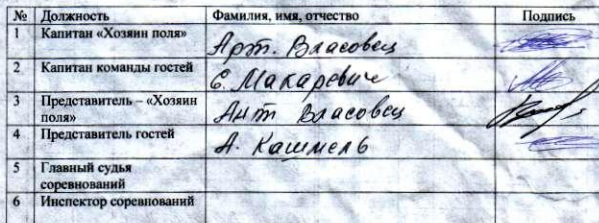 № Должность Фамилия, имя, отчество Подпись
1 Капитан «Хозяин поля» Арт. Власовец
2 Капитан команды гостей Е. Макаревич
3 Представитель – «Хозяин
поля» Ант Власовец
4 Представитель гостей А. Кашмель
5 Главный судья
соревнований
6 Инспектор соревнований